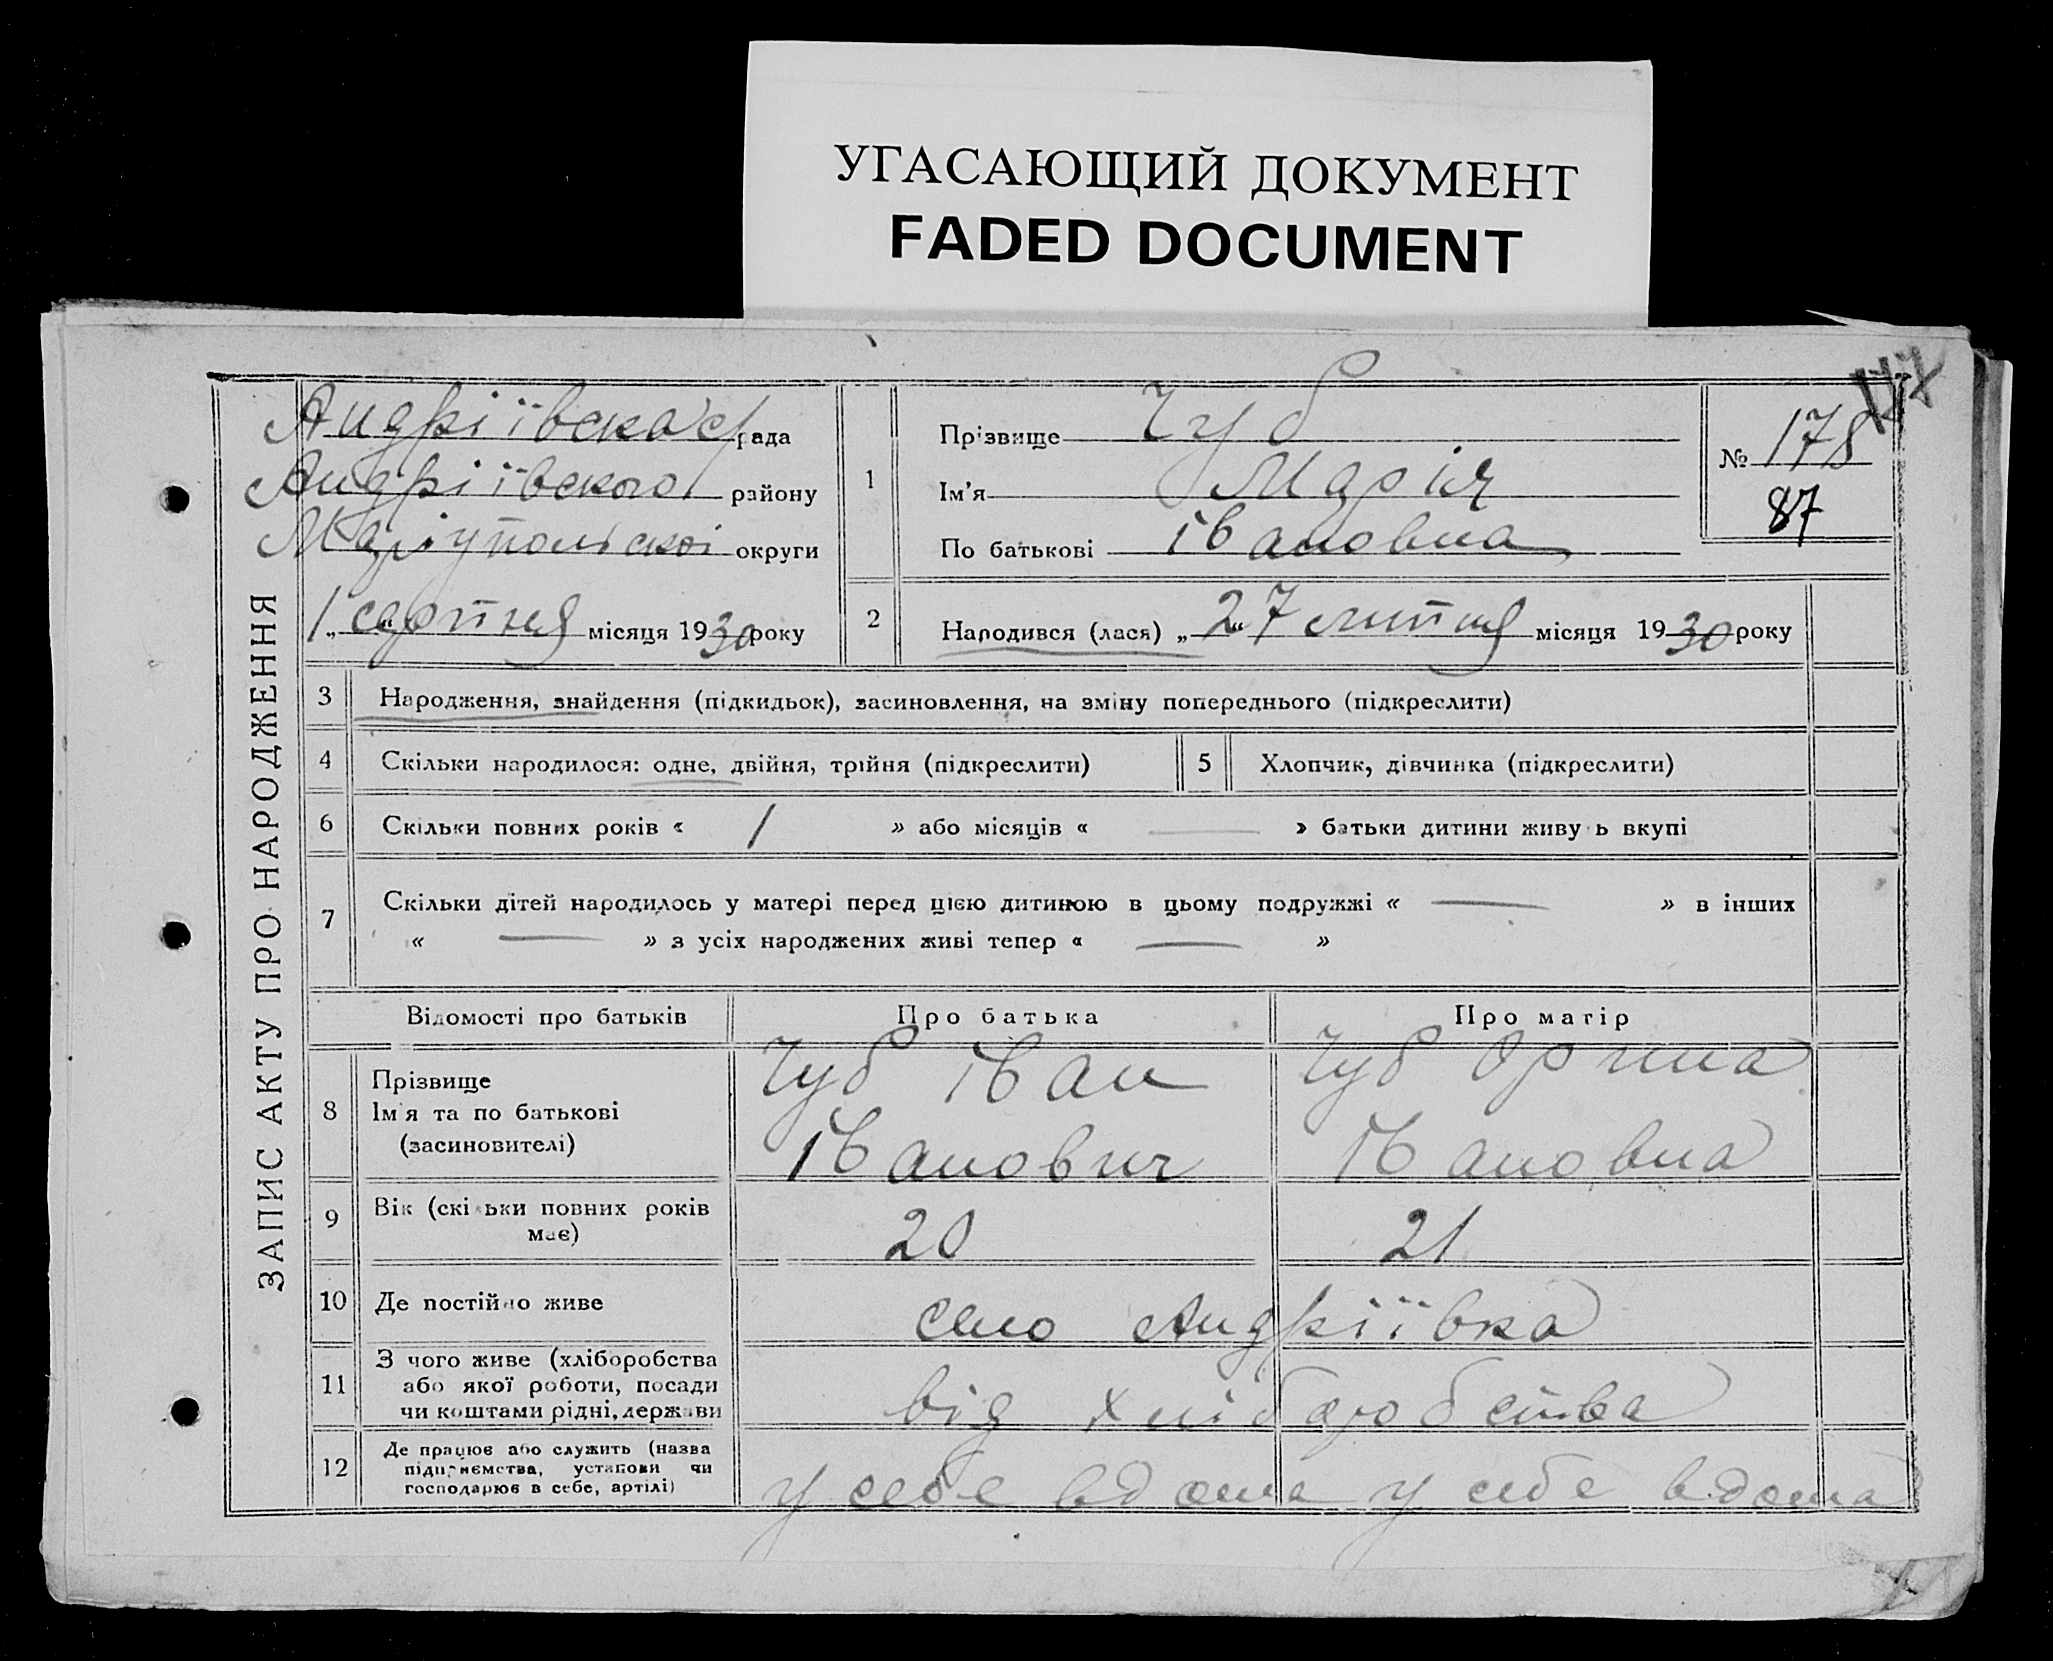 УГАСАЮЩИЙ ДОКУМЕНТ
FADED DOCUMENT
ЗАПИС АКТУ ПРО НАРОДЖЕННЯ
Андріївська с/рада
Андріївского району
Маріупольскої округи
1 „ серпня місяця 1930 року
1
Прізвище Чуб
Ім'я Марія
По батькові Івановна
№ 178
87
2 Народився (лася) „ 27 „ липня місяця 1930 року
3 Народження, знайдення (підкидьок), засиновлення, на зміну попереднього (підкреслити)
4 Скільки народилося: одне, двійня, трійня (підкреслити)
5 Хлопчик, дівчинка (підкреслити)
6 Скільки повних років « 1 » або місяців « — » батьки дитини живуть вкупі
7 Скільки дітей народилось у матері перед цією дитиною в цьому подружжі « — » в інших
« — » з усіх народжених живі тепер « — »
Відомості про батьків Про батька Про матір
8 Прізвище Чуб Іван Чуб Орина
Ім'я та по батькові
(засиновителі) Іванович Івановна
9 Вік (скільки повних років
має) 20 21
10 Де постійно живе село Андріївка
11 З чого живе (хліборобства
або якої роботи, посади
чи коштами рідні, держави від хліборобства
12 Де працює або служить (назва
підприємства, установи чи
господарює в себе, артілі) у себе вдома у себе вдома